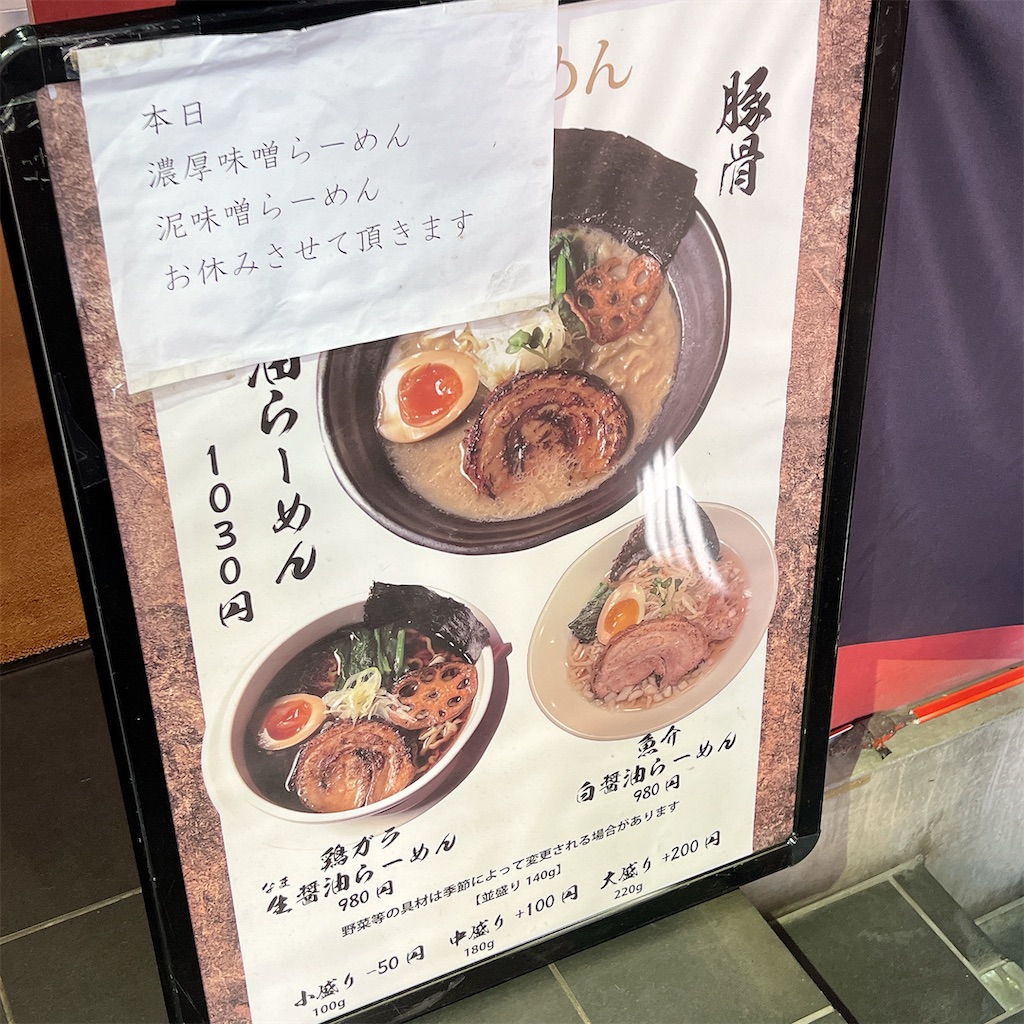 本日
濃厚味噌らーめん
泥味噌らーめん
お休みさせて頂きます
めん
豚骨
油らーめん
1030円
魚介
白醤油らーめん
980円
鶏ガラ
なま
生醤油らーめん
980円
野菜等の具材は季節によって変更される場合があります
【並盛り 140g】
小盛り -50円
100g
中盛り +100円
180g
大盛り +200円
220g